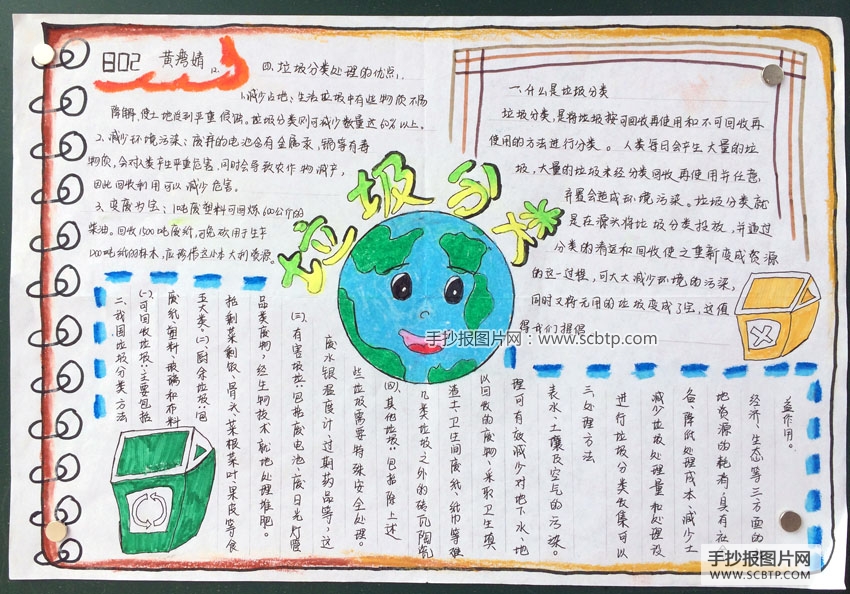 802 黄湾婧 12.
四.垃圾分类处理的优点:
1.减少占地:生活垃圾中有些物质不易
降解,使土地受到严重侵蚀。垃圾分类则可减少数量达60%以上。
2.减少环境污染:废弃的电池含有金属汞、镉等有毒
物质,会对人类产生严重危害,同时会导致农作物减产,
因此回收利用可以减少危害。
3.变废为宝:1吨废塑料可回炼600公斤的
柴油。回收1500吨废纸,可免砍用于生产
1200吨纸的林木,
一.什么是垃圾分类
垃圾分类,是将垃圾按可回收再使用和不可回收再
使用的方法进行分类。人类每日会产生大量的垃
圾,大量的垃圾未经分类回收再使用并任意
弃置会造成环境污染。垃圾分类就
是在源头将垃圾分类投放,并通过
分类的清运和回收使之重新变成资源
的这一过程,可大大减少环境的污染,
同时又将无用的垃圾变成了宝,这值
得我们提倡
垃圾分类
二.我国垃圾分类方法
(一).可回收垃圾:主要包括
废纸、塑料、玻璃和布料
五大类。(二)厨余垃圾:包
括剩菜剩饭、骨头、菜根菜叶、果皮等食
品类废物,经生物技术就地处理堆肥。
(三).有害垃圾:包括废电池、废日光灯管
废水银温度计、过期药品等,这
些垃圾需要特殊安全处理。
(四).其他垃圾:包括除上述
几类垃圾之外的砖瓦陶瓷
渣土、卫生间废纸、纸巾等难
以回收的废物,采取卫生填
埋可有效减少对地下水、地
表水、土壤及空气的污染。
三.处理方法
进行垃圾分类收集可以
减少垃圾处理量和处理设
备,降低处理成本,减少土
地资源的耗消,具有社会
经济、生态等三方面的
益作用。
手抄报图片网:www.scbtp.com
手抄报图片网
WWW.SCBTP.COM